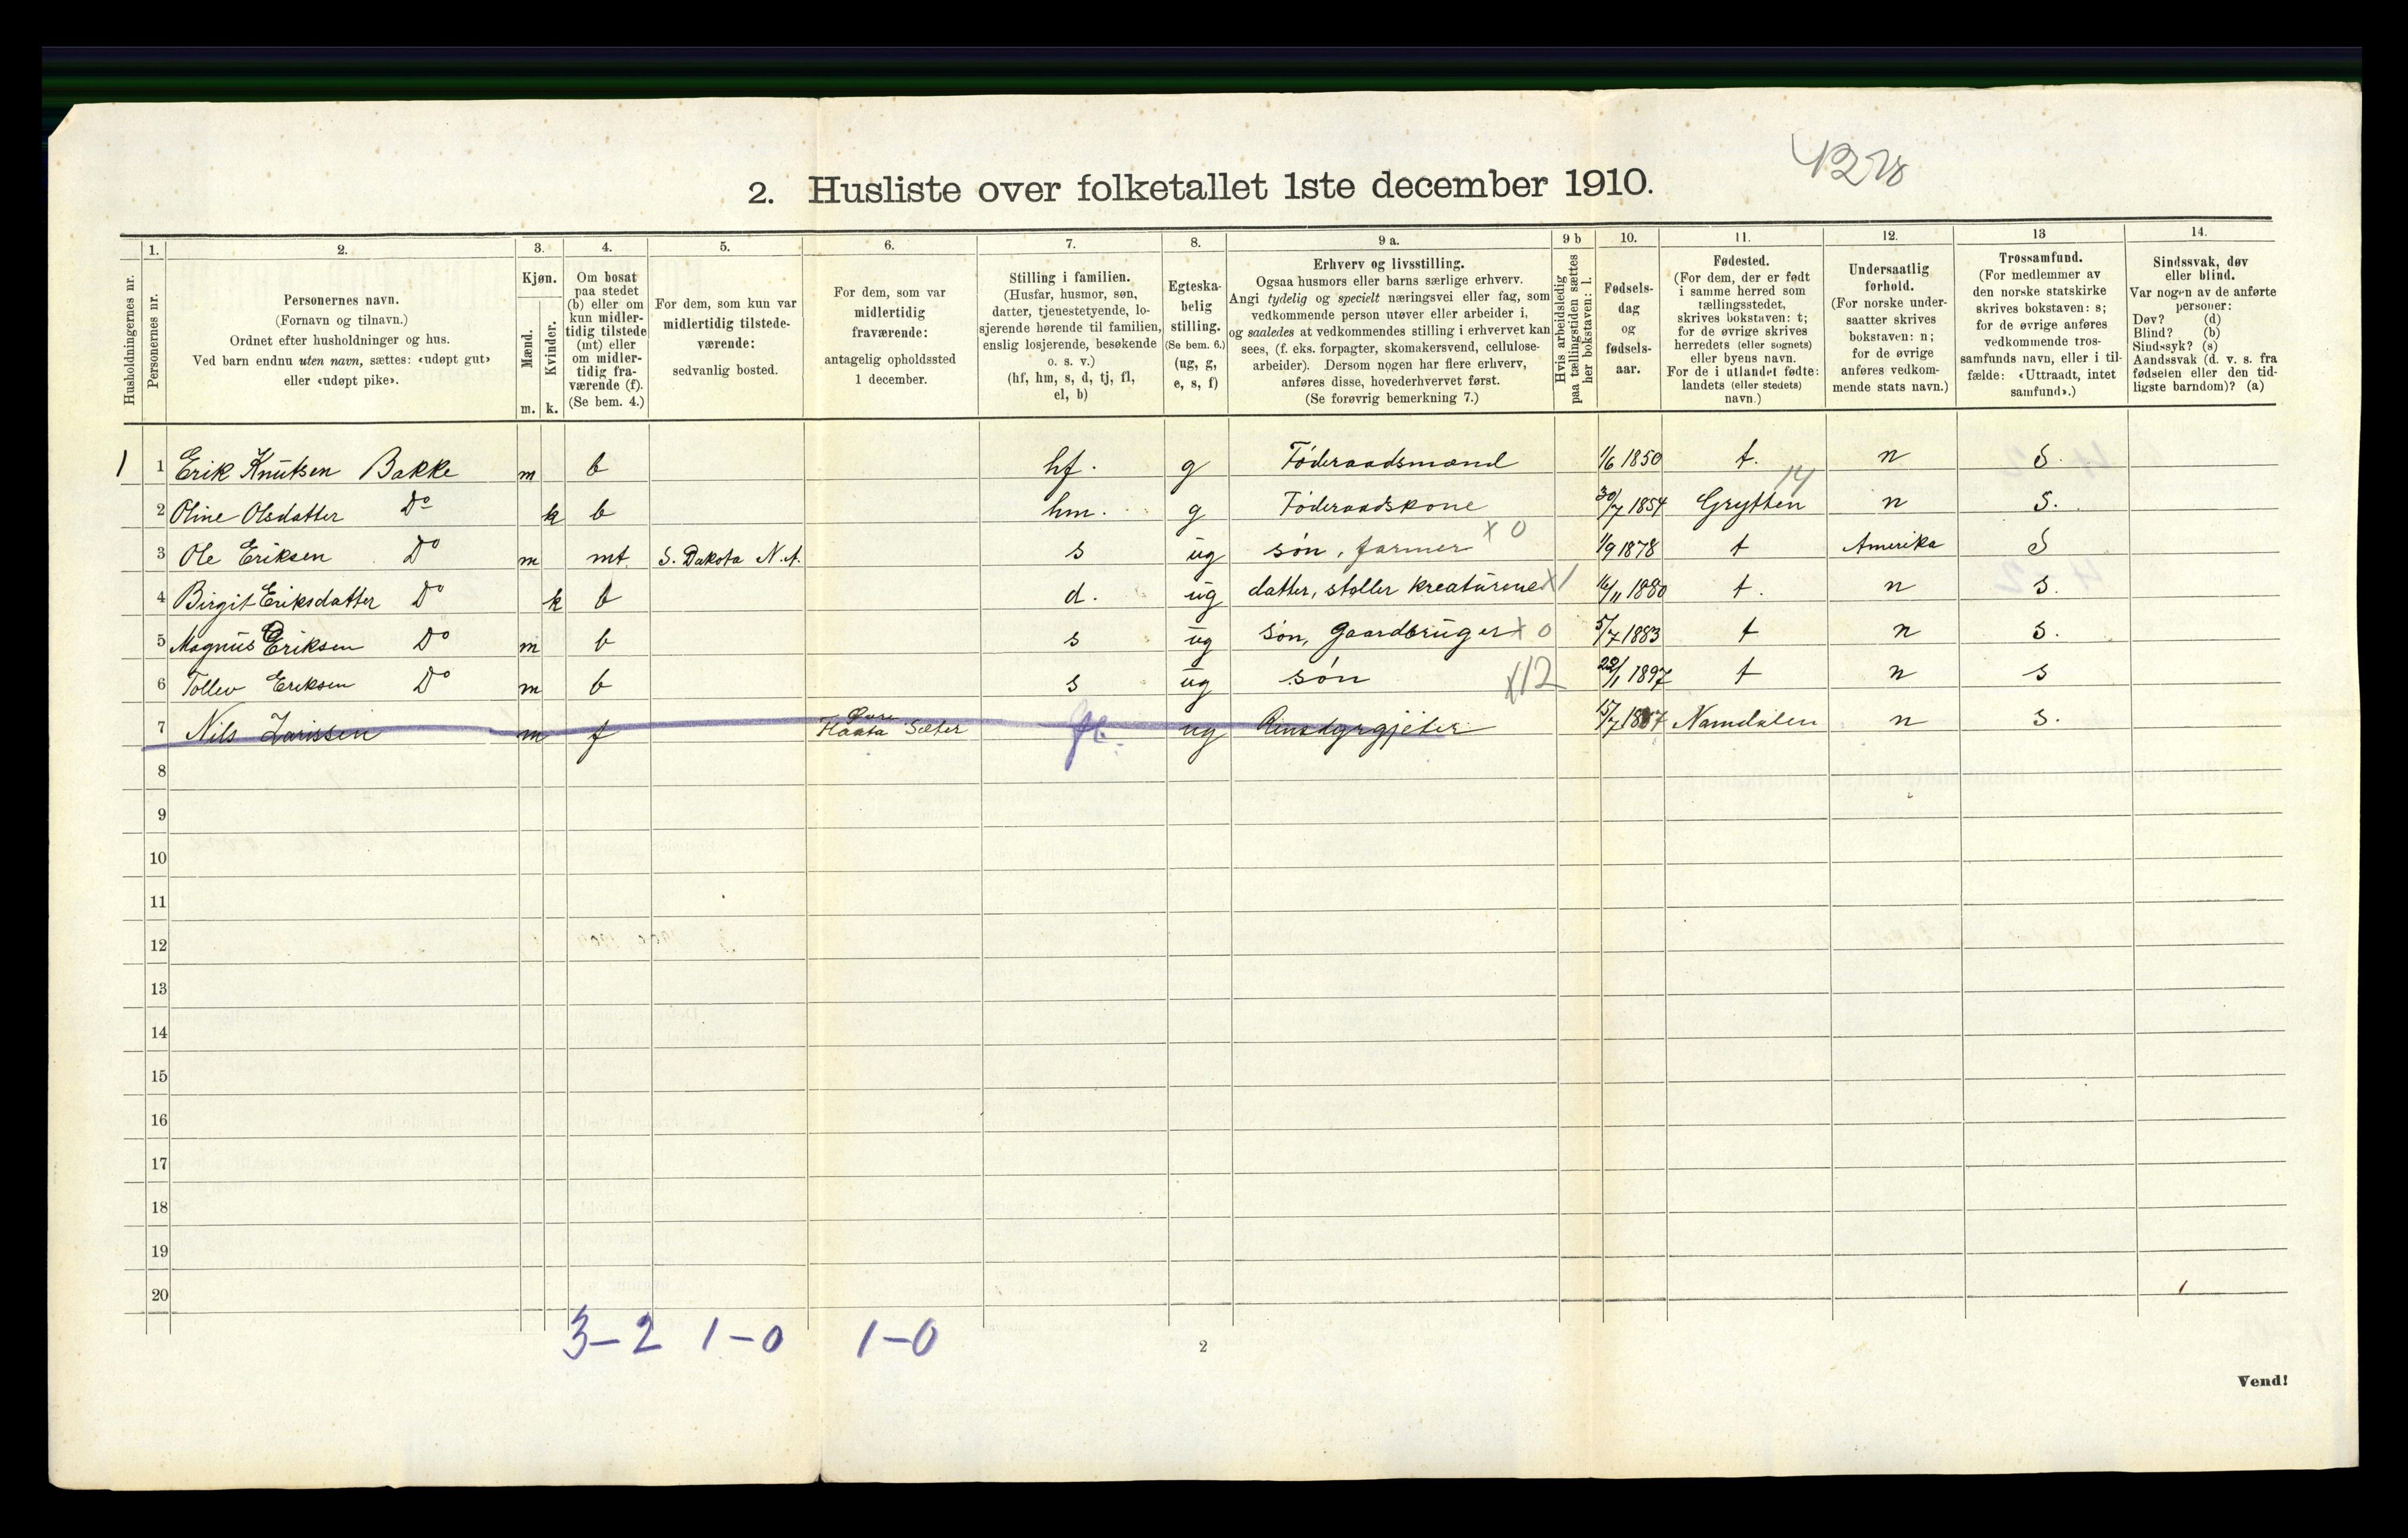 4228
2. Husliste over folketallet 1ste december 1910.
Husholdningernes nr.
1.
Personernes nr.
2.
Personernes navn.
(Fornavn og tilnavn.)
Ordnet efter husholdninger og hus.
Ved barn endnu uten navn, sættes: «udøpt gut»
eller «udøpt pike».
3.
Kjøn.
Mænd.
Kvinder.
m. k.
4.
Om bosat
paa stedet
(b) eller om
kun midler-
tidig tilstede
(mt) eller
om midler-
tidig fra-
værende (f).
(Se bem. 4.)
5.
For dem, som kun var
midlertidig tilstede-
værende:
sedvanlig bosted.
6.
For dem, som var
midlertidig
fraværende:
antagelig opholdssted
1 december.
7.
Stilling i familien.
(Husfar, husmor, søn,
datter, tjenestetyende, lo-
sjerende hørende til familien,
enslig losjerende, besøkende
o. s. v.)
(hf, hm, s, d, tj, fl,
el, b)
8.
Egteska-
belig
stilling.
(Se bem. 6.)
(ug, g,
e, s, f)
9 a.
Erhverv og livsstilling.
Ogsaa husmors eller barns særlige erhverv.
Angi tydelig og specielt næringsvei eller fag, som
vedkommende person utøver eller arbeider i,
og saaledes at vedkommendes stilling i erhvervet kan
sees, (f. eks. forpagter, skomakersvend, cellulose-
arbeider). Dersom nogen har flere erhverv,
anføres disse, hovederhvervet først.
(Se forøvrig bemerkning 7.)
9 b
Hvis arbeidsledig
paa tællingstiden sættes
her bokstaven: l.
10.
Fødsels-
dag
og
fødsels-
aar.
11.
Fødested.
(For dem, der er født
i samme herred som
tællingsstedet,
skrives bokstaven: t;
for de øvrige skrives
herredets (eller sognets)
eller byens navn.
For de i utlandet fødte:
landets (eller stedets)
navn.)
12.
Undersaatlig
forhold.
(For norske under-
saatter skrives
bokstaven: n;
for de øvrige
anføres vedkom-
mende stats navn.)
13
Trossamfund.
(For medlemmer av
den norske statskirke
skrives bokstaven: s;
for de øvrige anføres
vedkommende tros-
samfunds navn, eller i til-
fælde: «Uttraadt, intet
samfund».)
14.
Sindssvak, døv
eller blind.
Var nogen av de anførte
personer:
Døv? (d)
Blind? (b)
Sindssyk? (s)
Aandssvak (d. v. s. fra
fødselen eller den tid-
ligste barndom)? (a)
1 1 Erik Knutsen Bakke m b hf. g Føderaadsmand 1/6 1850 t. n S.
2 Oline Olsdatter Do k b hm. g Føderaadskone 30/7 1854 Grytten 14 n S.
3 Ole Eriksen Do m mt. S. Dakota N.A. s ug søn, farmer x 0 1/9 1878 t Amerika S
4 Birgit Eriksdatter Do k b d. ug datter, steller kreaturene x1 16/11 1880 t. n S.
5 Magnus Eriksen Do m b s ug søn, gaardbruger x 0 5/7 1883 t n S.
6 Tollev Eriksen Do m b s ug søn x12 22/1 1897 t n S
7 Nils Larissen m f Øvre Sæter ug Rensdyrgjeter 15/7 1887 Namdalen n S.
8
9
10
11
12
13
14
15
16
17
18
19
20
3-2 1-0 1-0
2
Vend!